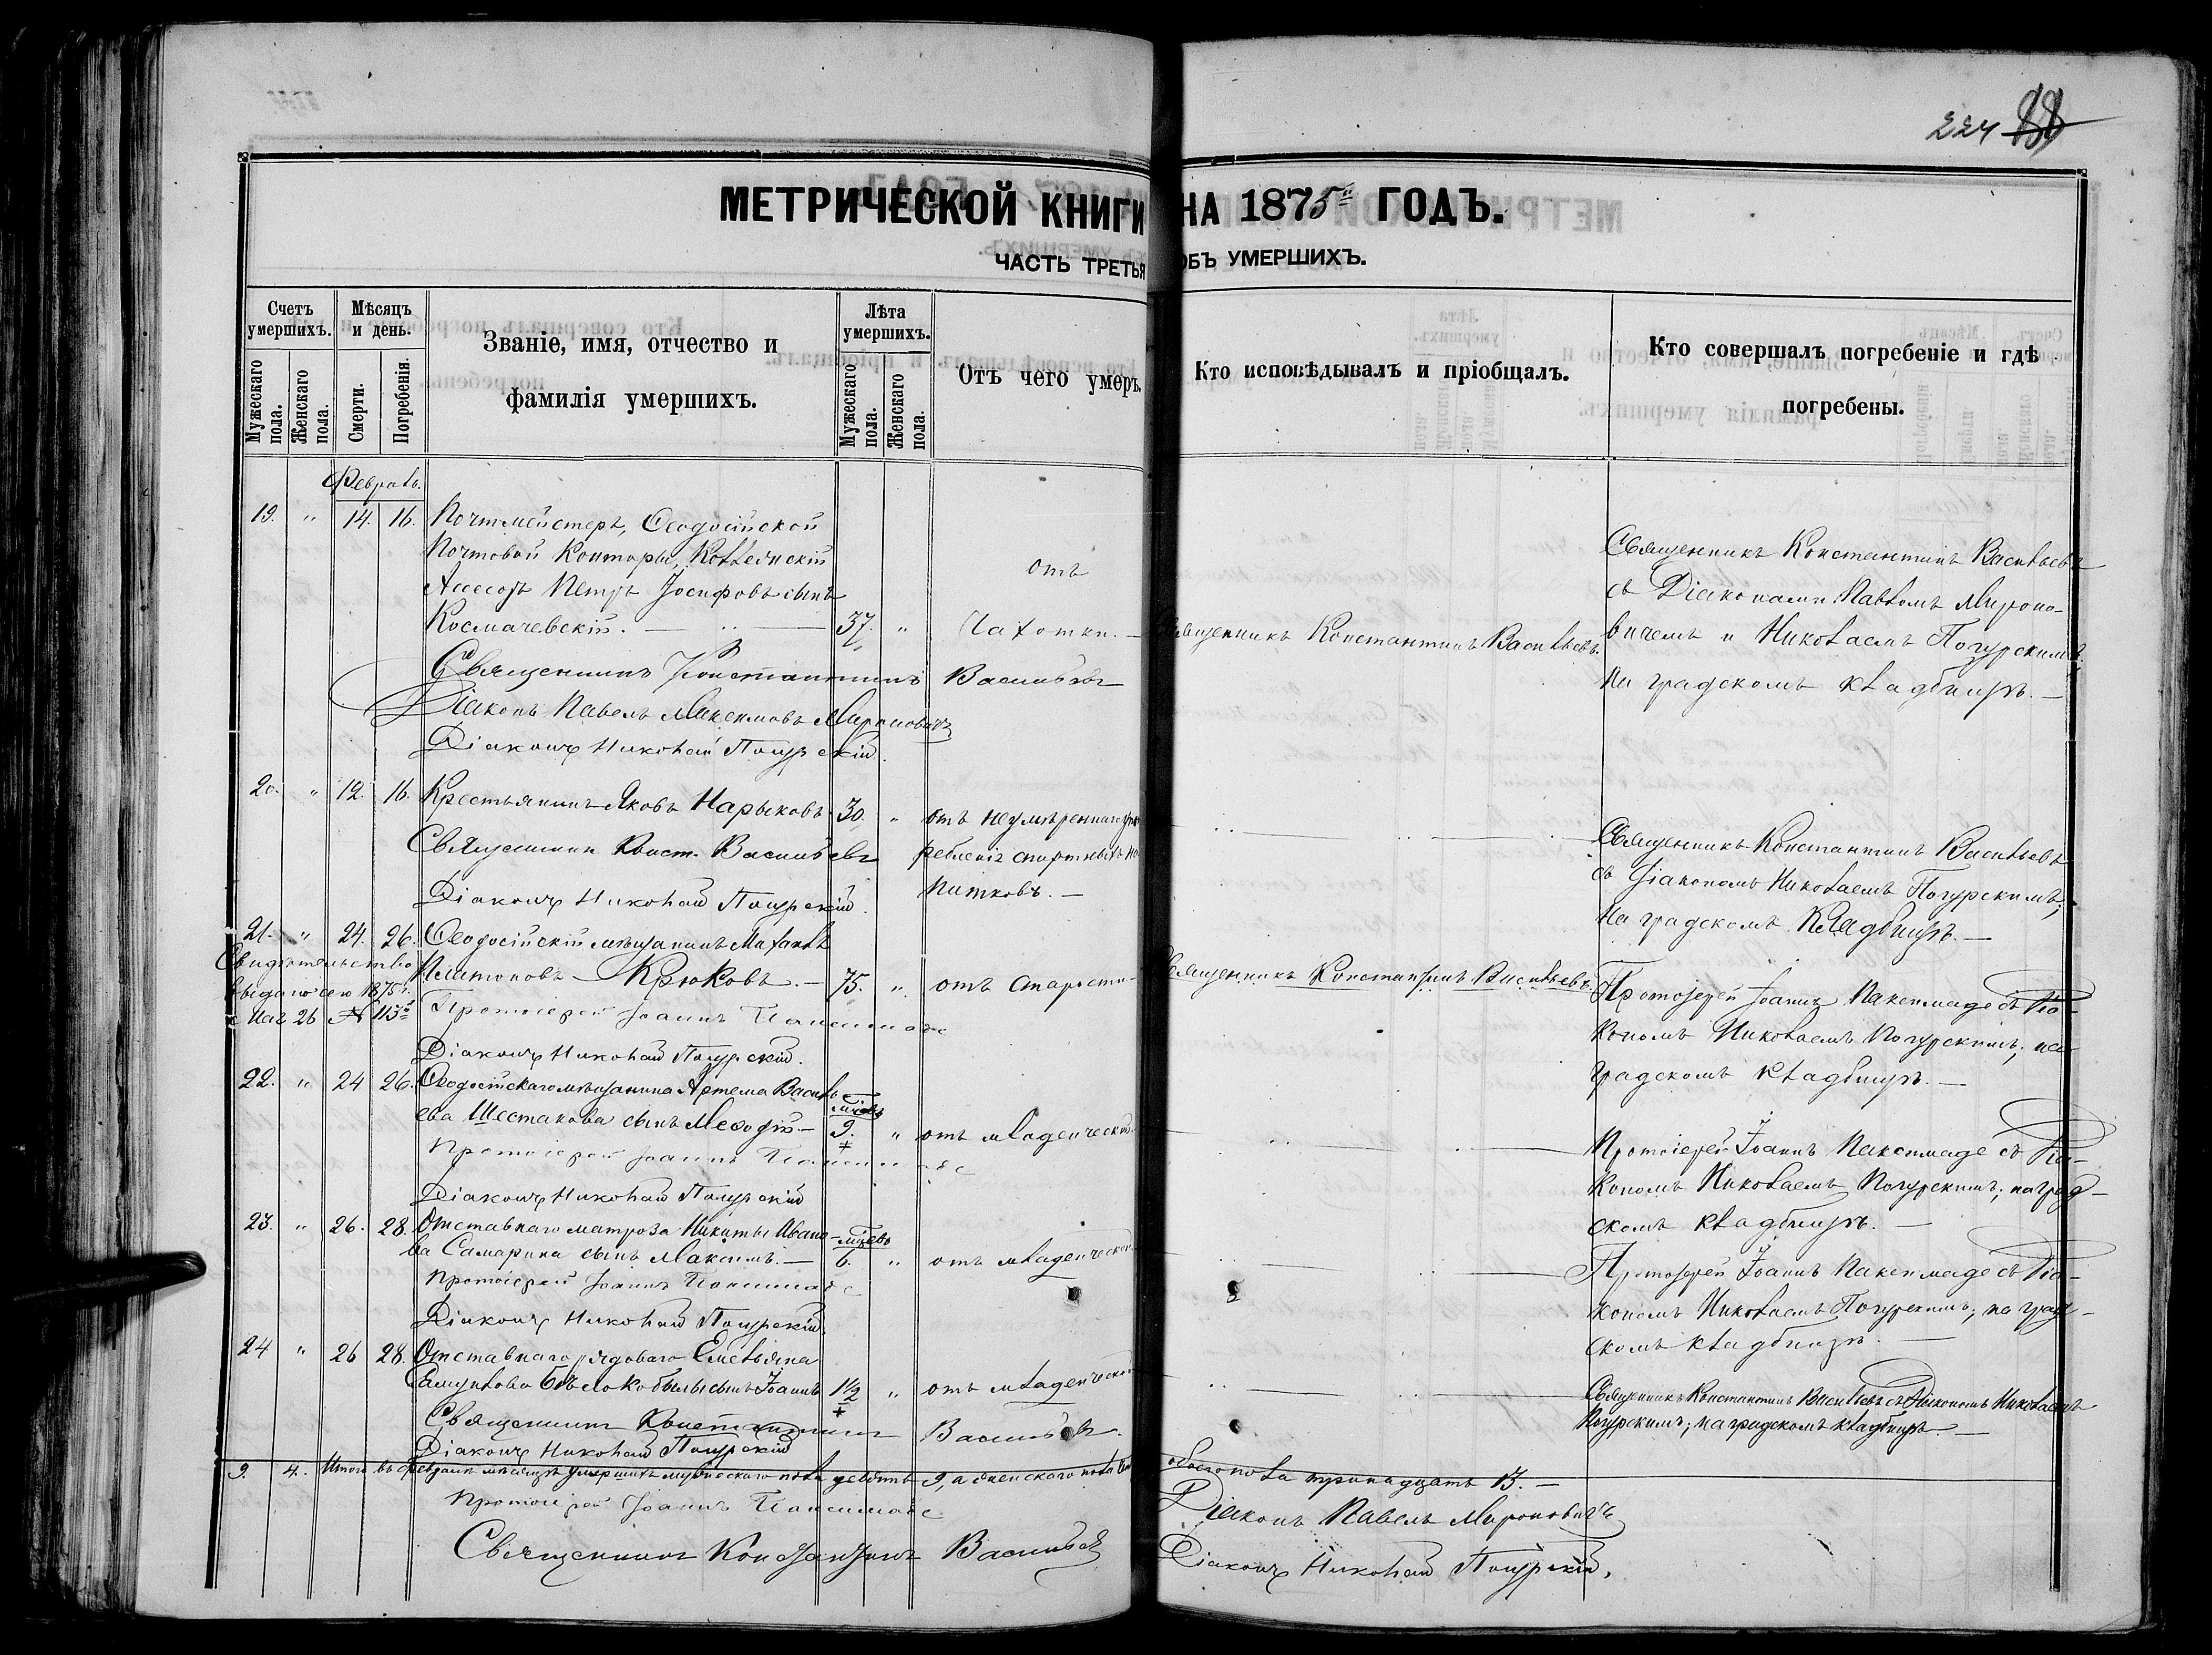 224 88
МЕТРИЧЕСКОЙ КНИГИ НА 1875й ГОДЪ.
ЧАСТЬ ТРЕТЬЯ ОБЪ УМЕРШИХЪ.
Счетъ умершихъ.
Мужескаго пола.
Женскаго пола.
Мѣсяцъ и день.
Смерти.
Погребенія.
Званіе, имя, отчество и
фамилія умершихъ.
Лѣта умершихъ.
Мужескаго пола.
Женскаго пола.
Отъ чего умеръ.
Кто исповѣдывалъ и пріобщалъ.
Кто совершалъ погребеніе и гдѣ
погребены.
Февраль.
19. " 14. 16. Почтмейстеръ, Ѳеодосійской
Почтовой Конторы, Коллежскій
Ассесоръ Петръ Іосифовъ сынъ
Космачевскій. — 37. "
отъ
Чахотки. —
Священникъ Константинъ Васильевъ.
Священникъ Константинъ Васильевъ
съ Діаконами Павломъ Мироно-
вичемъ и Николаемъ Погурскимъ
на градскомъ кладбищѣ. —
Священникъ Константинъ Васильевъ
Діаконъ Павелъ Максимовъ Мироновичъ
Діаконъ Николай Погурскій.
20. " 12. 16. Крестьянинъ Яковъ Нарыковъ. 30. "
отъ неумѣреннаго упот
ребленія спиртныхъ на
питковъ. —
Священникъ Константинъ Васильевъ
съ Діакономъ Николаемъ Погурскимъ;
на градскомъ Кладбищѣ. —
Священникъ Конст. Васильевъ
Діаконъ Николай Погурскій.
21. " 24. 26. Ѳеодосійскій мѣщанинъ Михаилъ
Платоновъ — Крюковъ. — 75. " отъ старости
Свидѣтельство
выдано сего 1875 г.
Мая 26 № 115й
Священникъ Константинъ Васильевъ.
Протоіерей Іоаннъ Паксимаде съ Діа-
кономъ Николаемъ Погурскимъ; на
градскомъ кладбищѣ. —
Протоіерей Іоаннъ Паксимаде
Діаконъ Николай Погурскій.
22. " 24 26. Ѳеодосійскаго мѣщанина Артема Василь-
ева Шестакова сынъ Меѳодій. — мѣсяц. 9. " отъ младенческой
Протоіерей Іоаннъ Паксимаде съ Діа-
кономъ Николаемъ Погурскимъ; на град-
скомъ кладбищѣ. —
Протоіерей Іоаннъ Паксимаде
Діаконъ Николай Погурскій
23. " 26. 28. Отставнаго матроза Никиты Ивано-
ва Самарина сынъ Максимъ. — 6. " отъ младенческой
Протоіерей Іоаннъ Паксимаде съ Діа-
кономъ Николаемъ Погурскимъ; на град-
скомъ кладбищѣ. —
Протоіерей Іоаннъ Паксимаде
Діаконъ Николай Погурскій.
24 " 26 28. Отставнаго рядоваго Емельяна
Самуилова Бѣлокобылы сынъ Іоаннъ 1½ " отъ младенческой
Священникъ Константинъ Васильевъ съ Діакономъ Николаемъ
Погурскимъ; на градскомъ кладбищѣ. —
Священникъ Константинъ Васильевъ.
Діаконъ Николай Погурскій
9. 4. Итого въ февралѣ мѣсяцѣ умершихъ мужескаго пола девять 9, а женскаго пола
обоего пола тринадцать 13. —
Протоіерей Іоаннъ Паксимаде
Священникъ Константинъ Васильевъ
Діаконъ Павелъ Мироновичъ
Діаконъ Николай Погурскій.